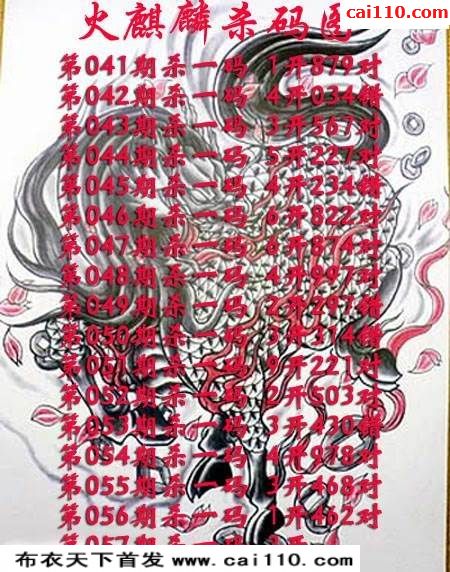 cai110.com
火麒麟杀码
第041期杀一码 1开879对
第042期杀一码 4开034错
第043期杀一码 3开567对
第044期杀一码 5开227对
第045期杀一码 4开234错
第046期杀一码 6开822对
第047期杀一码 6开874对
第048期杀一码 4开997对
第049期杀一码 2开297错
第050期杀一码 3开314错
第051期杀一码 9开221对
第052期杀一码 2开503对
第053期杀一码 3开430错
第054期杀一码 4开978对
第055期杀一码 3开468对
第056期杀一码 1开462对
布衣天下首发 www.cai110.com